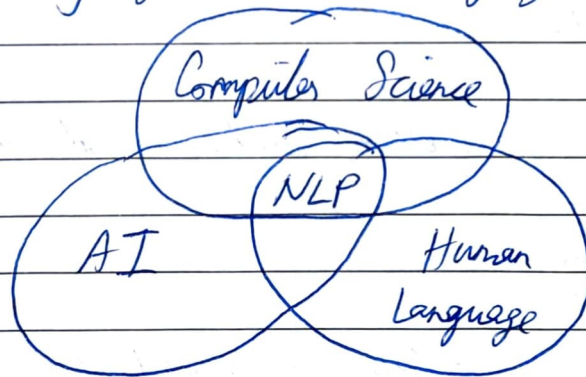 Computer Science
NLP
AI
Human
Language